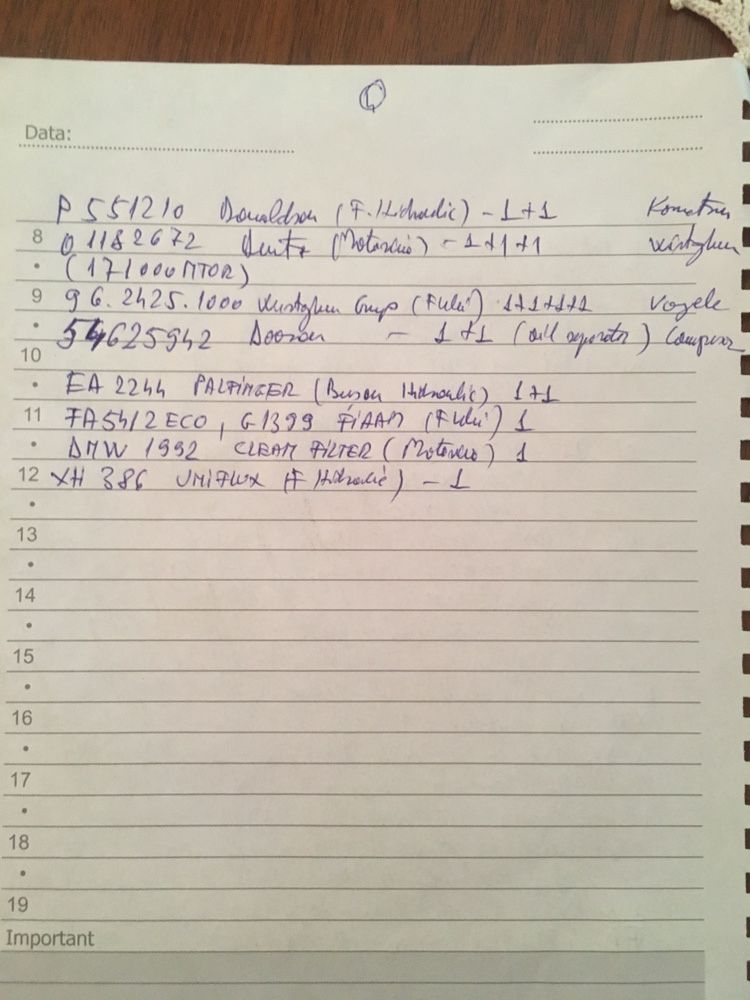 1
Data:
P 551210 Donaldson (F. Hidraulic) - 1+1
8 01182672 Deutz (Motorino) - 1+1+1
(171000 MTOR)
9 96.2425.1000 Wirtghen Grup (Fului) 1+1+1+1 Vogele
54625942 Doosan - 1+1 (oill separator) Compresor
10
EA 2244 PALFINGER (Buson Hidraulic) 1+1
11 FA5412 ECO, G1399 FIAAM (Fului) 1
DMW 1992 CLEAN FILTER (Motorino) 1
12 XH 386 UNIFLUX (F Hidraulic) - 1
13
14
15
16
17
18
19
Important